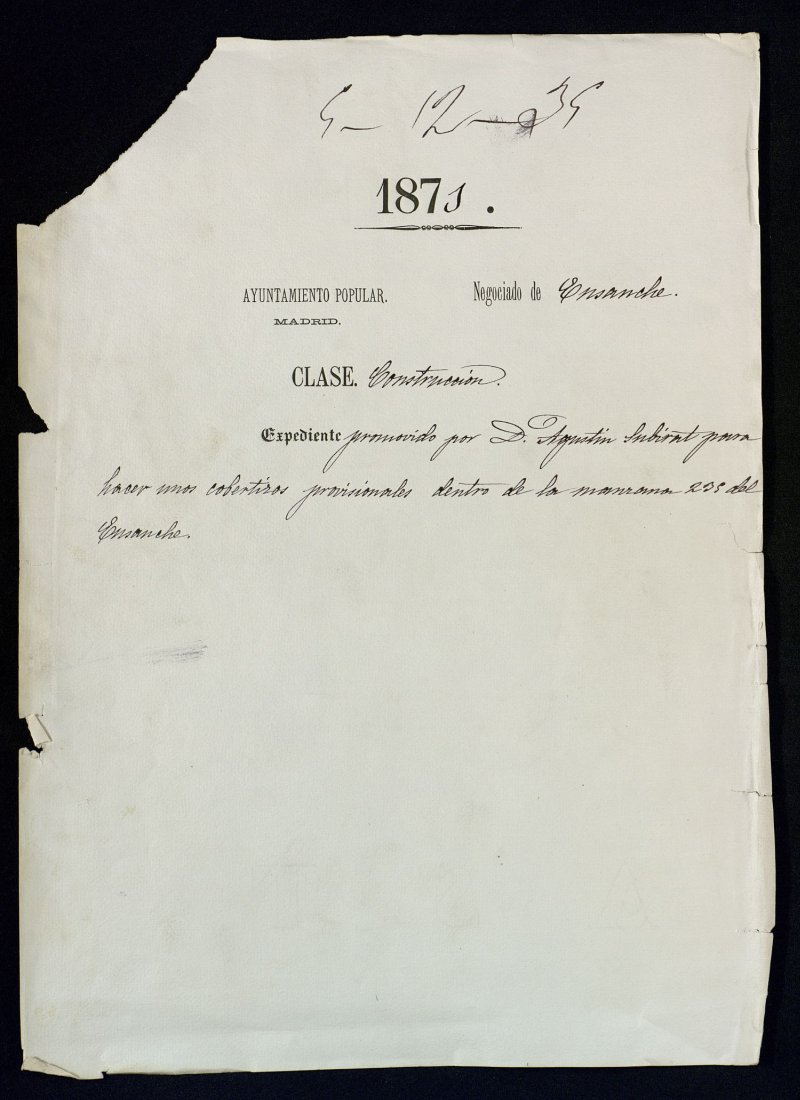 5-12-35
1871.
AYUNTAMIENTO POPULAR.
MADRID.
Negociado de Ensanche.
CLASE. Construccion.
Expediente promovido por D. Agustin Subirat para
hacer unos cobertizos provisionales dentro de la manzana 235 del
Ensanche.